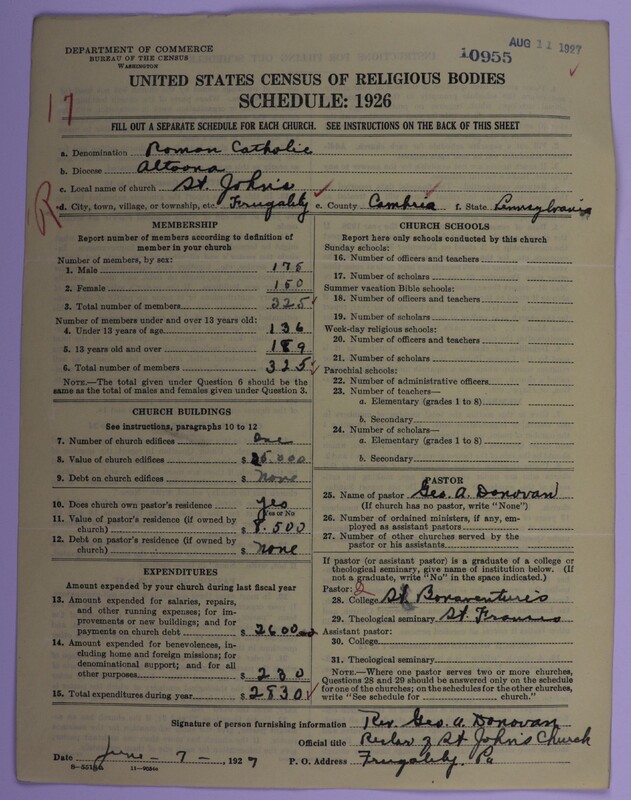 DEPARTMENT OF COMMERCE
BUREAU OF THE CENSUS
WASHINGTON
10955
AUG 11 1927
UNITED STATES CENSUS OF RELIGIOUS BODIES
SCHEDULE: 1926
17
FILL OUT A SEPARATE SCHEDULE FOR EACH CHURCH. SEE INSTRUCTIONS ON THE BACK OF THIS SHEET
a. Denomination Roman Catholic
b. Diocese Altoona
c. Local name of church St. John's
R
d. City, town, village, or township, etc. Frugality e. County Cambria f. State Pennsylvania
MEMBERSHIP
Report number of members according to definition of
member in your church
Number of members, by sex:
1. Male 175
2. Female 150
3. Total number of members 325
Number of members under and over 13 years old:
4. Under 13 years of age 136
5. 13 years old and over 189
6. Total number of members 325
NOTE.—The total given under Question 6 should be the
same as the total of males and females given under Question 3.
CHURCH BUILDINGS
See instructions, paragraphs 10 to 12
7. Number of church edifices One
8. Value of church edifices $
9. Debt on church edifices $ None
10. Does church own pastor's residence yes
Yes or No
11. Value of pastor's residence (if owned by
church) $ 8.500
12. Debt on pastor's residence (if owned by
church) $ None
EXPENDITURES
Amount expended by your church during last fiscal year
13. Amount expended for salaries, repairs,
and other running expenses; for im-
provements or new buildings; and for
payments on church debt $ 2600
14. Amount expended for benevolences, in-
cluding home and foreign missions; for
denominational support; and for all
other purposes $ 230
15. Total expenditures during year $ 2830
CHURCH SCHOOLS
Report here only schools conducted by this church
Sunday schools:
16. Number of officers and teachers
17. Number of scholars
Summer vacation Bible schools:
18. Number of officers and teachers
19. Number of scholars
Week-day religious schools:
20. Number of officers and teachers
21. Number of scholars
Parochial schools:
22. Number of administrative officers
23. Number of teachers—
a. Elementary (grades 1 to 8)
b. Secondary
24. Number of scholars—
a. Elementary (grades 1 to 8)
b. Secondary
PASTOR
25. Name of pastor Geo. A. Donovan
(If church has no pastor, write "None")
26. Number of ordained ministers, if any, em-
ployed as assistant pastors
27. Number of other churches served by the
pastor or his assistants
If pastor (or assistant pastor) is a graduate of a college or
theological seminary, give name of institution below. (If
not a graduate, write "No" in the space indicated.)
Pastor: 2
28. College St Bonaventure's
29. Theological seminary St. Francis
Assistant pastor:
30. College
31. Theological seminary
NOTE.—Where one pastor serves two or more churches,
Questions 28 and 29 should be answered only on the schedule
for one of the churches; on the schedules for the other churches,
write "See schedule for church."
Signature of person furnishing information Rev. Geo. A. Donovan
Official title Rector of St John's Church
Date June - 7 - , 1927 P. O. Address Frugality, Pa